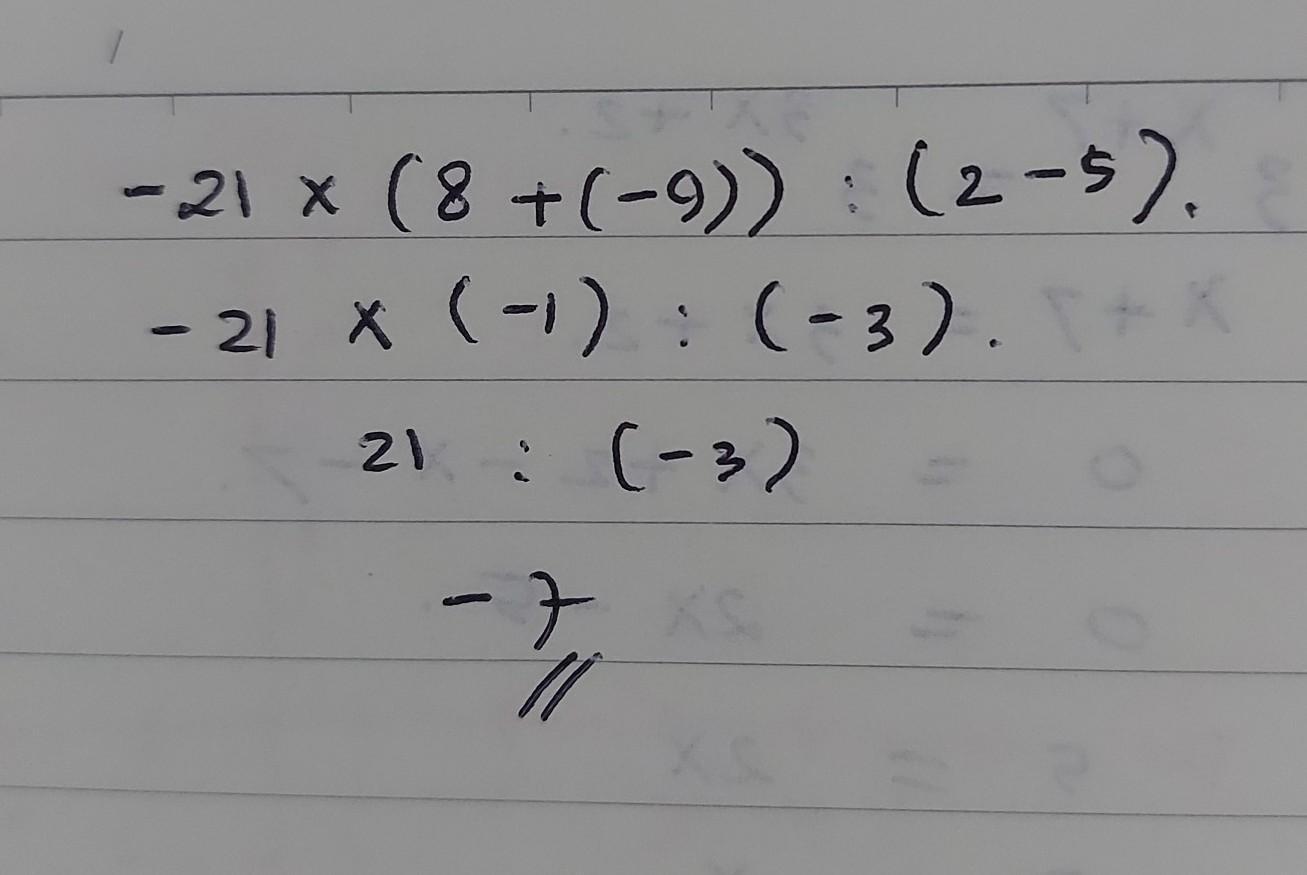 -21 x (8 + (-9)) : (2 - 5).
-21 x (-1) : (-3).
21 : (-3)
-7